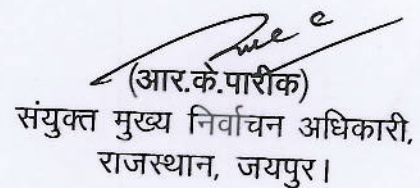 (आर.के.पारीक)
संयुक्त मुख्य निर्वाचन अधिकारी,
राजस्थान, जयपुर।